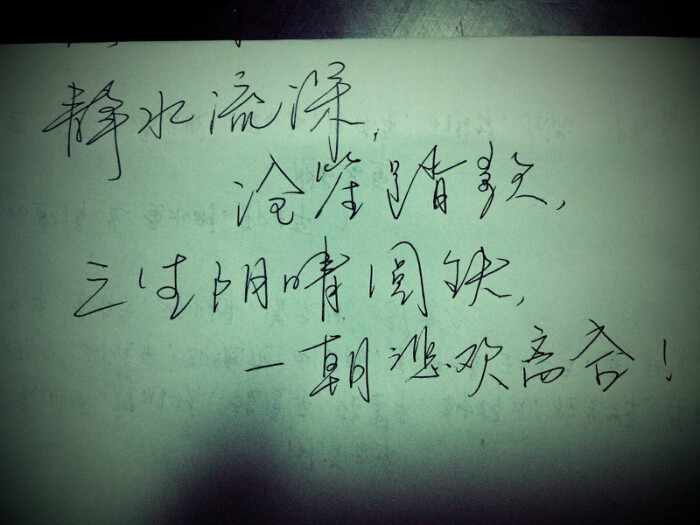 静水流深,
沧笙踏歌,
三生阴晴圆缺,
一朝悲欢离合!